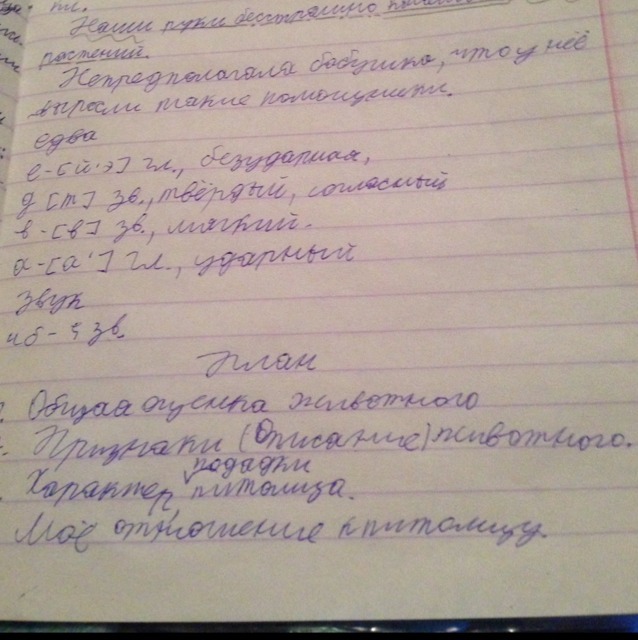 Наши руки бесстрашно
растений.
Непредполагала бабушка, что у неё
выросли такие помощники.
едва
е-[й'э] гл., безударная,
д [т] зв., твёрдый, согласный
в-[в] зв., мягкий.
а-[а'] гл., ударный
звук
4б - 5 зв.
План
Общая оценка животного
Признаки (Описание) животного.
повадки
Характер, питомца.
Моё отношение к питомцу.